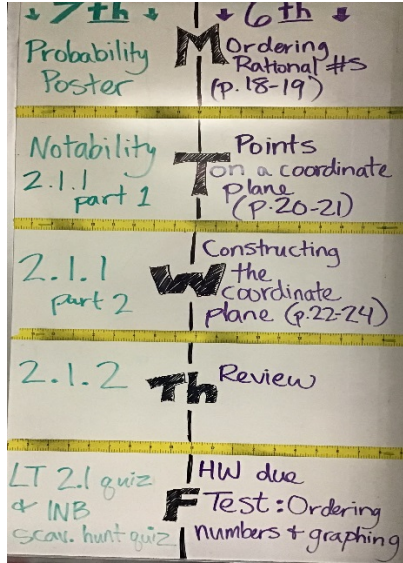 ↓ 7th ↓ ↓ 6th ↓
Probability
Poster
M
Ordering
Rational #s
(p. 18-19)
Notability
2.1.1
part 1
T
Points
on a coordinate
plane
(p. 20-21)
2.1.1
part 2
W
Constructing
the
coordinate
plane (p. 22-24)
2.1.2
Th
Review
LT 2.1 quiz
& INB
scav. hunt quiz
F
HW due
Test: Ordering
numbers & graphing